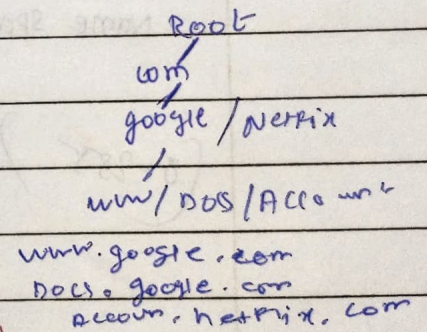 Root
com
google / Netflix
www / DOCS / Account
www.google.com
Docs.google.com
Accoun.netflix.com